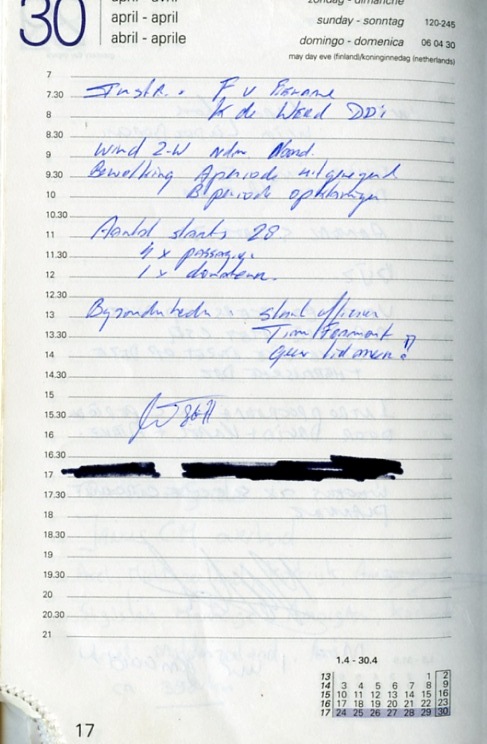 zondag - dimanche
30 april - april
april - april
abril - aprile
sunday - sonntag 120-245
domingo - domenica 06 04 30
may day eve (finland)/koninginnedag (netherlands)
7
7.30 Instr. F v
8 K de Werd DDI
8.30
9 Wind Z-W ndm Noord.
9.30 Bewolking A periode uitgeregend
10 B periode opklaringen
10.30
11 Aantal starts 28
11.30 4 x passagier
12 1 x donateur.
12.30
13 Byzonderheden start officier
13.30 Tim
14 geen lid meer!
14.30
15
15.30
16
16.30
17
17.30
18
18.30
19
19.30
20
20.30
21
1.4 - 30.4
13 1 2
14 3 4 5 6 7 8 9
15 10 11 12 13 14 15 16
16 17 18 19 20 21 22 23
17 24 25 26 27 28 29 30
17